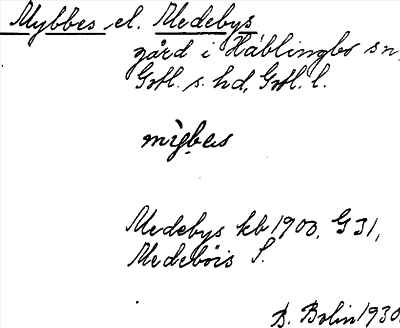 Mybbes el. Medebys
gård i Hablingbo sn,
Gotl. s. hd, Gotl. l.
mỳbəs
Medebys kb 1900, G 31,
Medebois S.
B. Bolin 1930